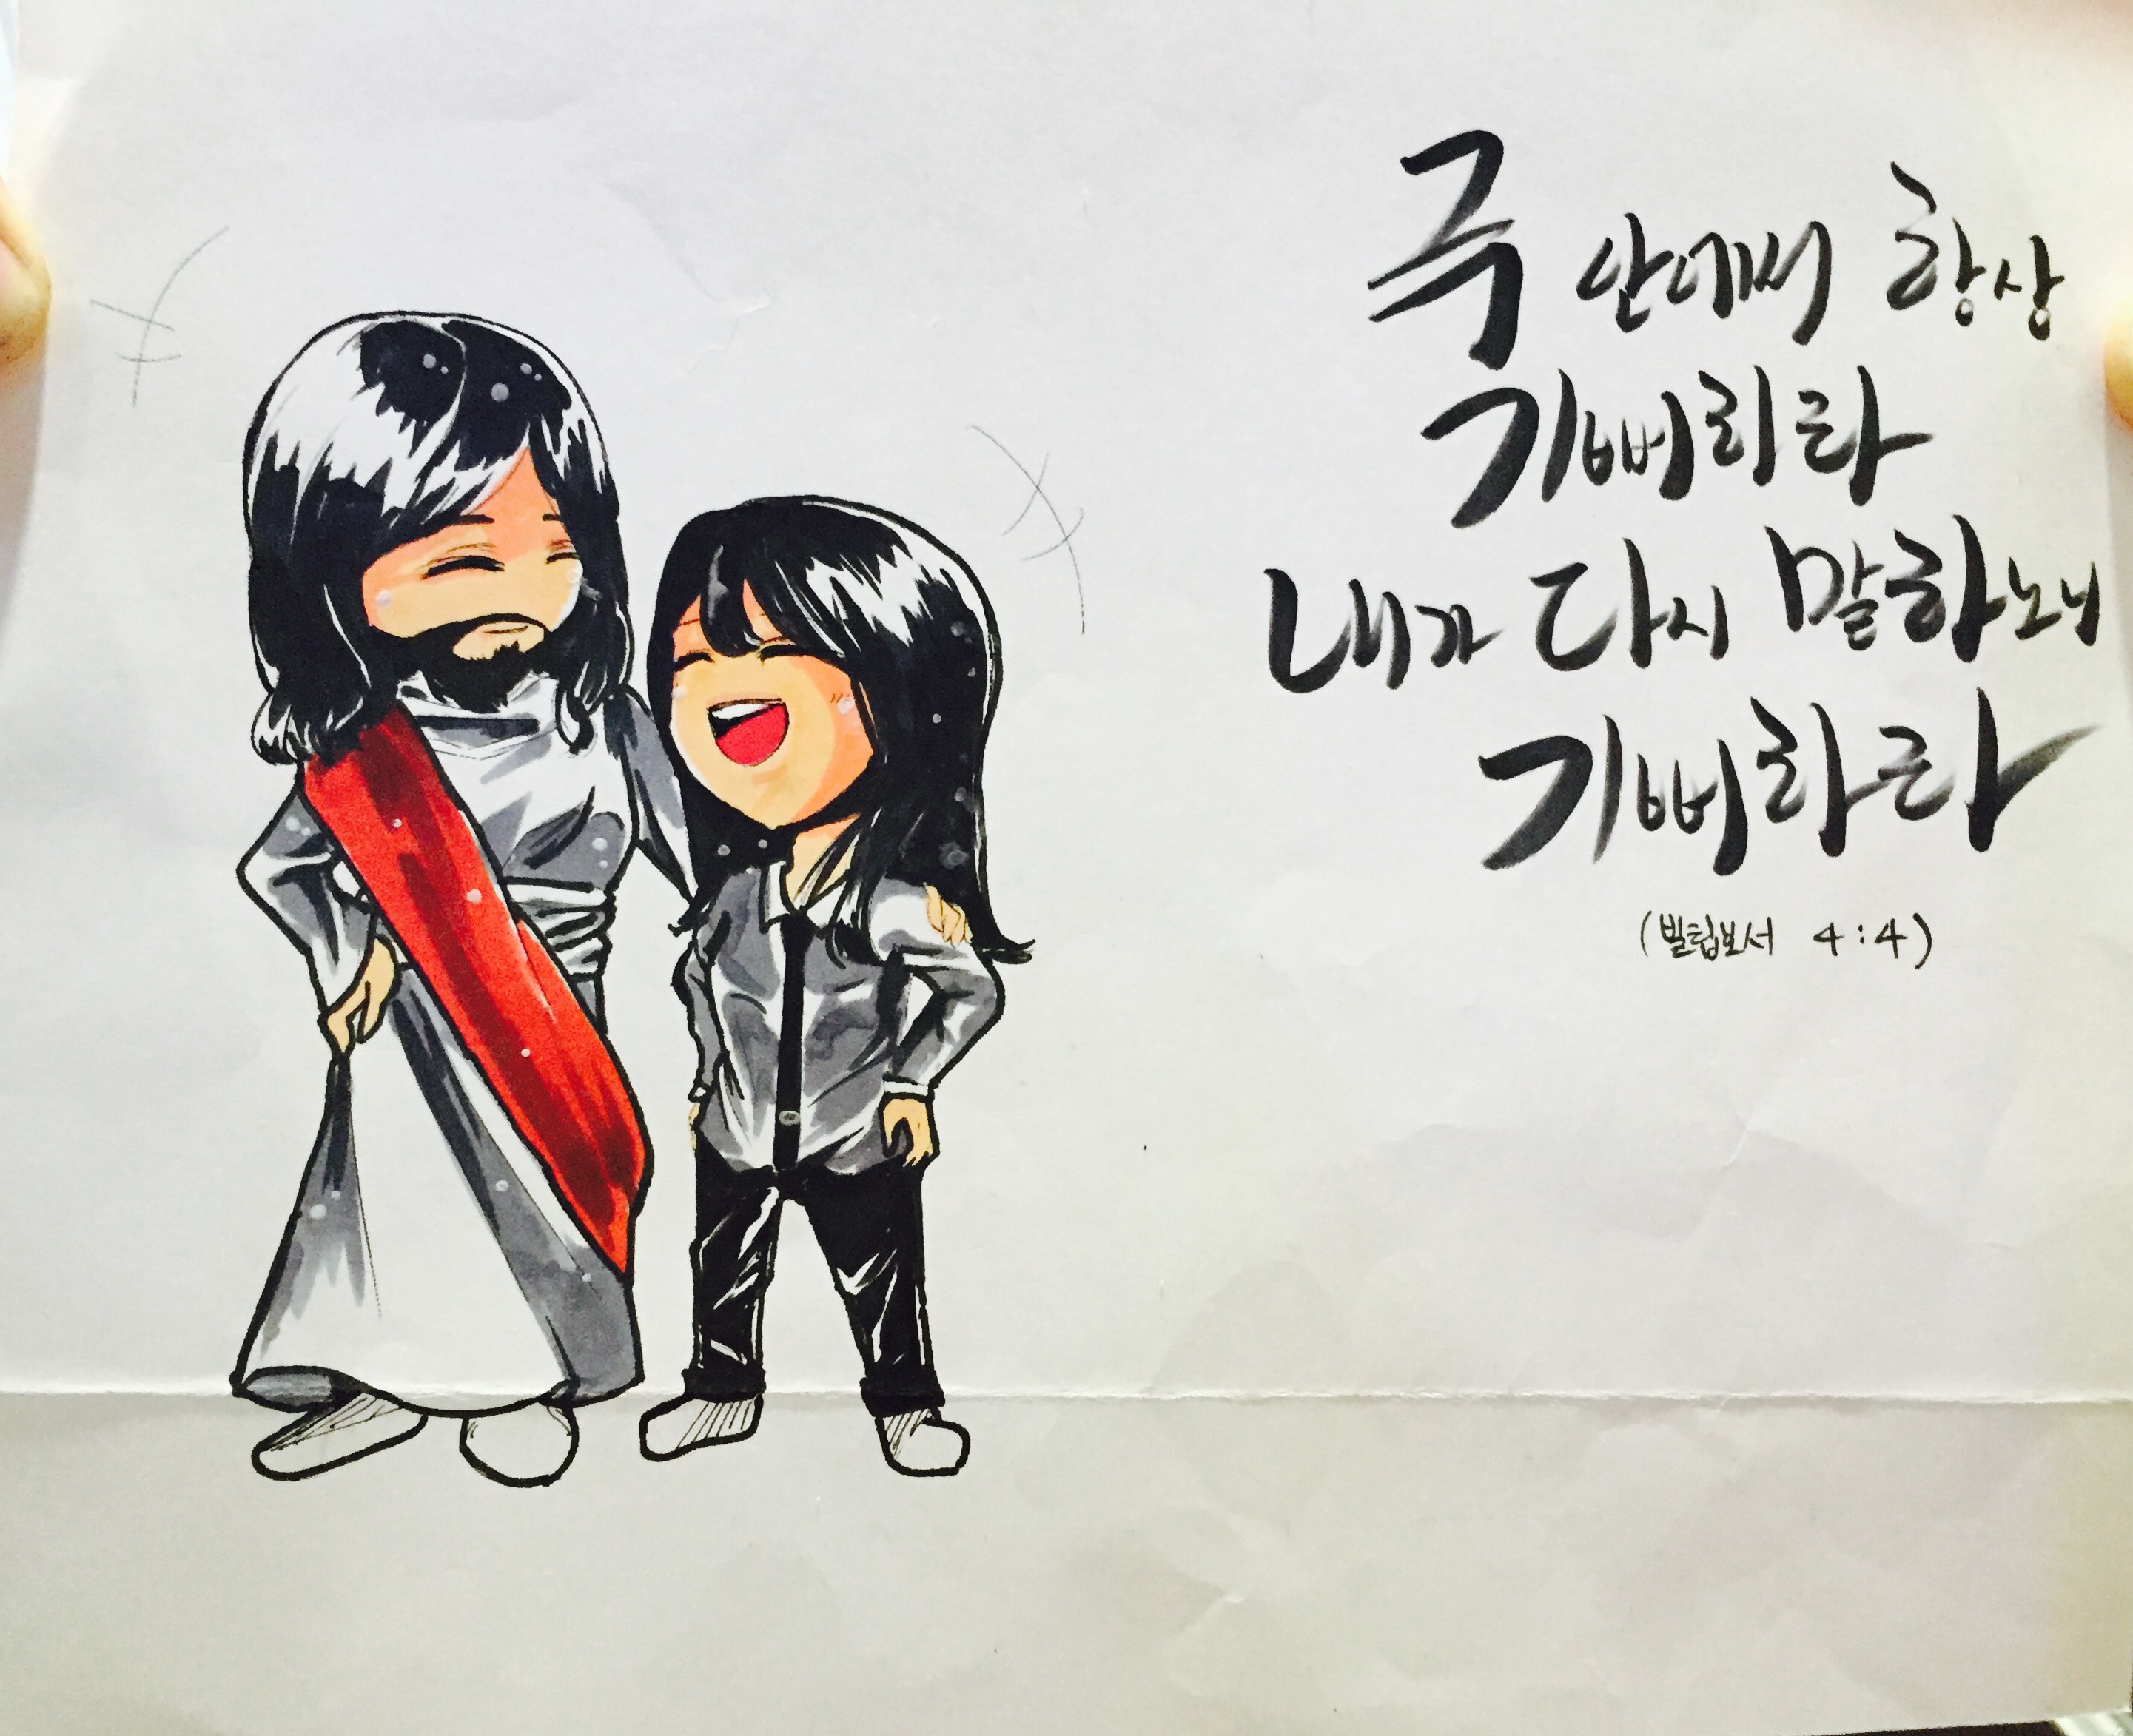 주 안에서 항상
기뻐하라
내가 다시 말하노니
기뻐하라
(빌립보서 4:4)